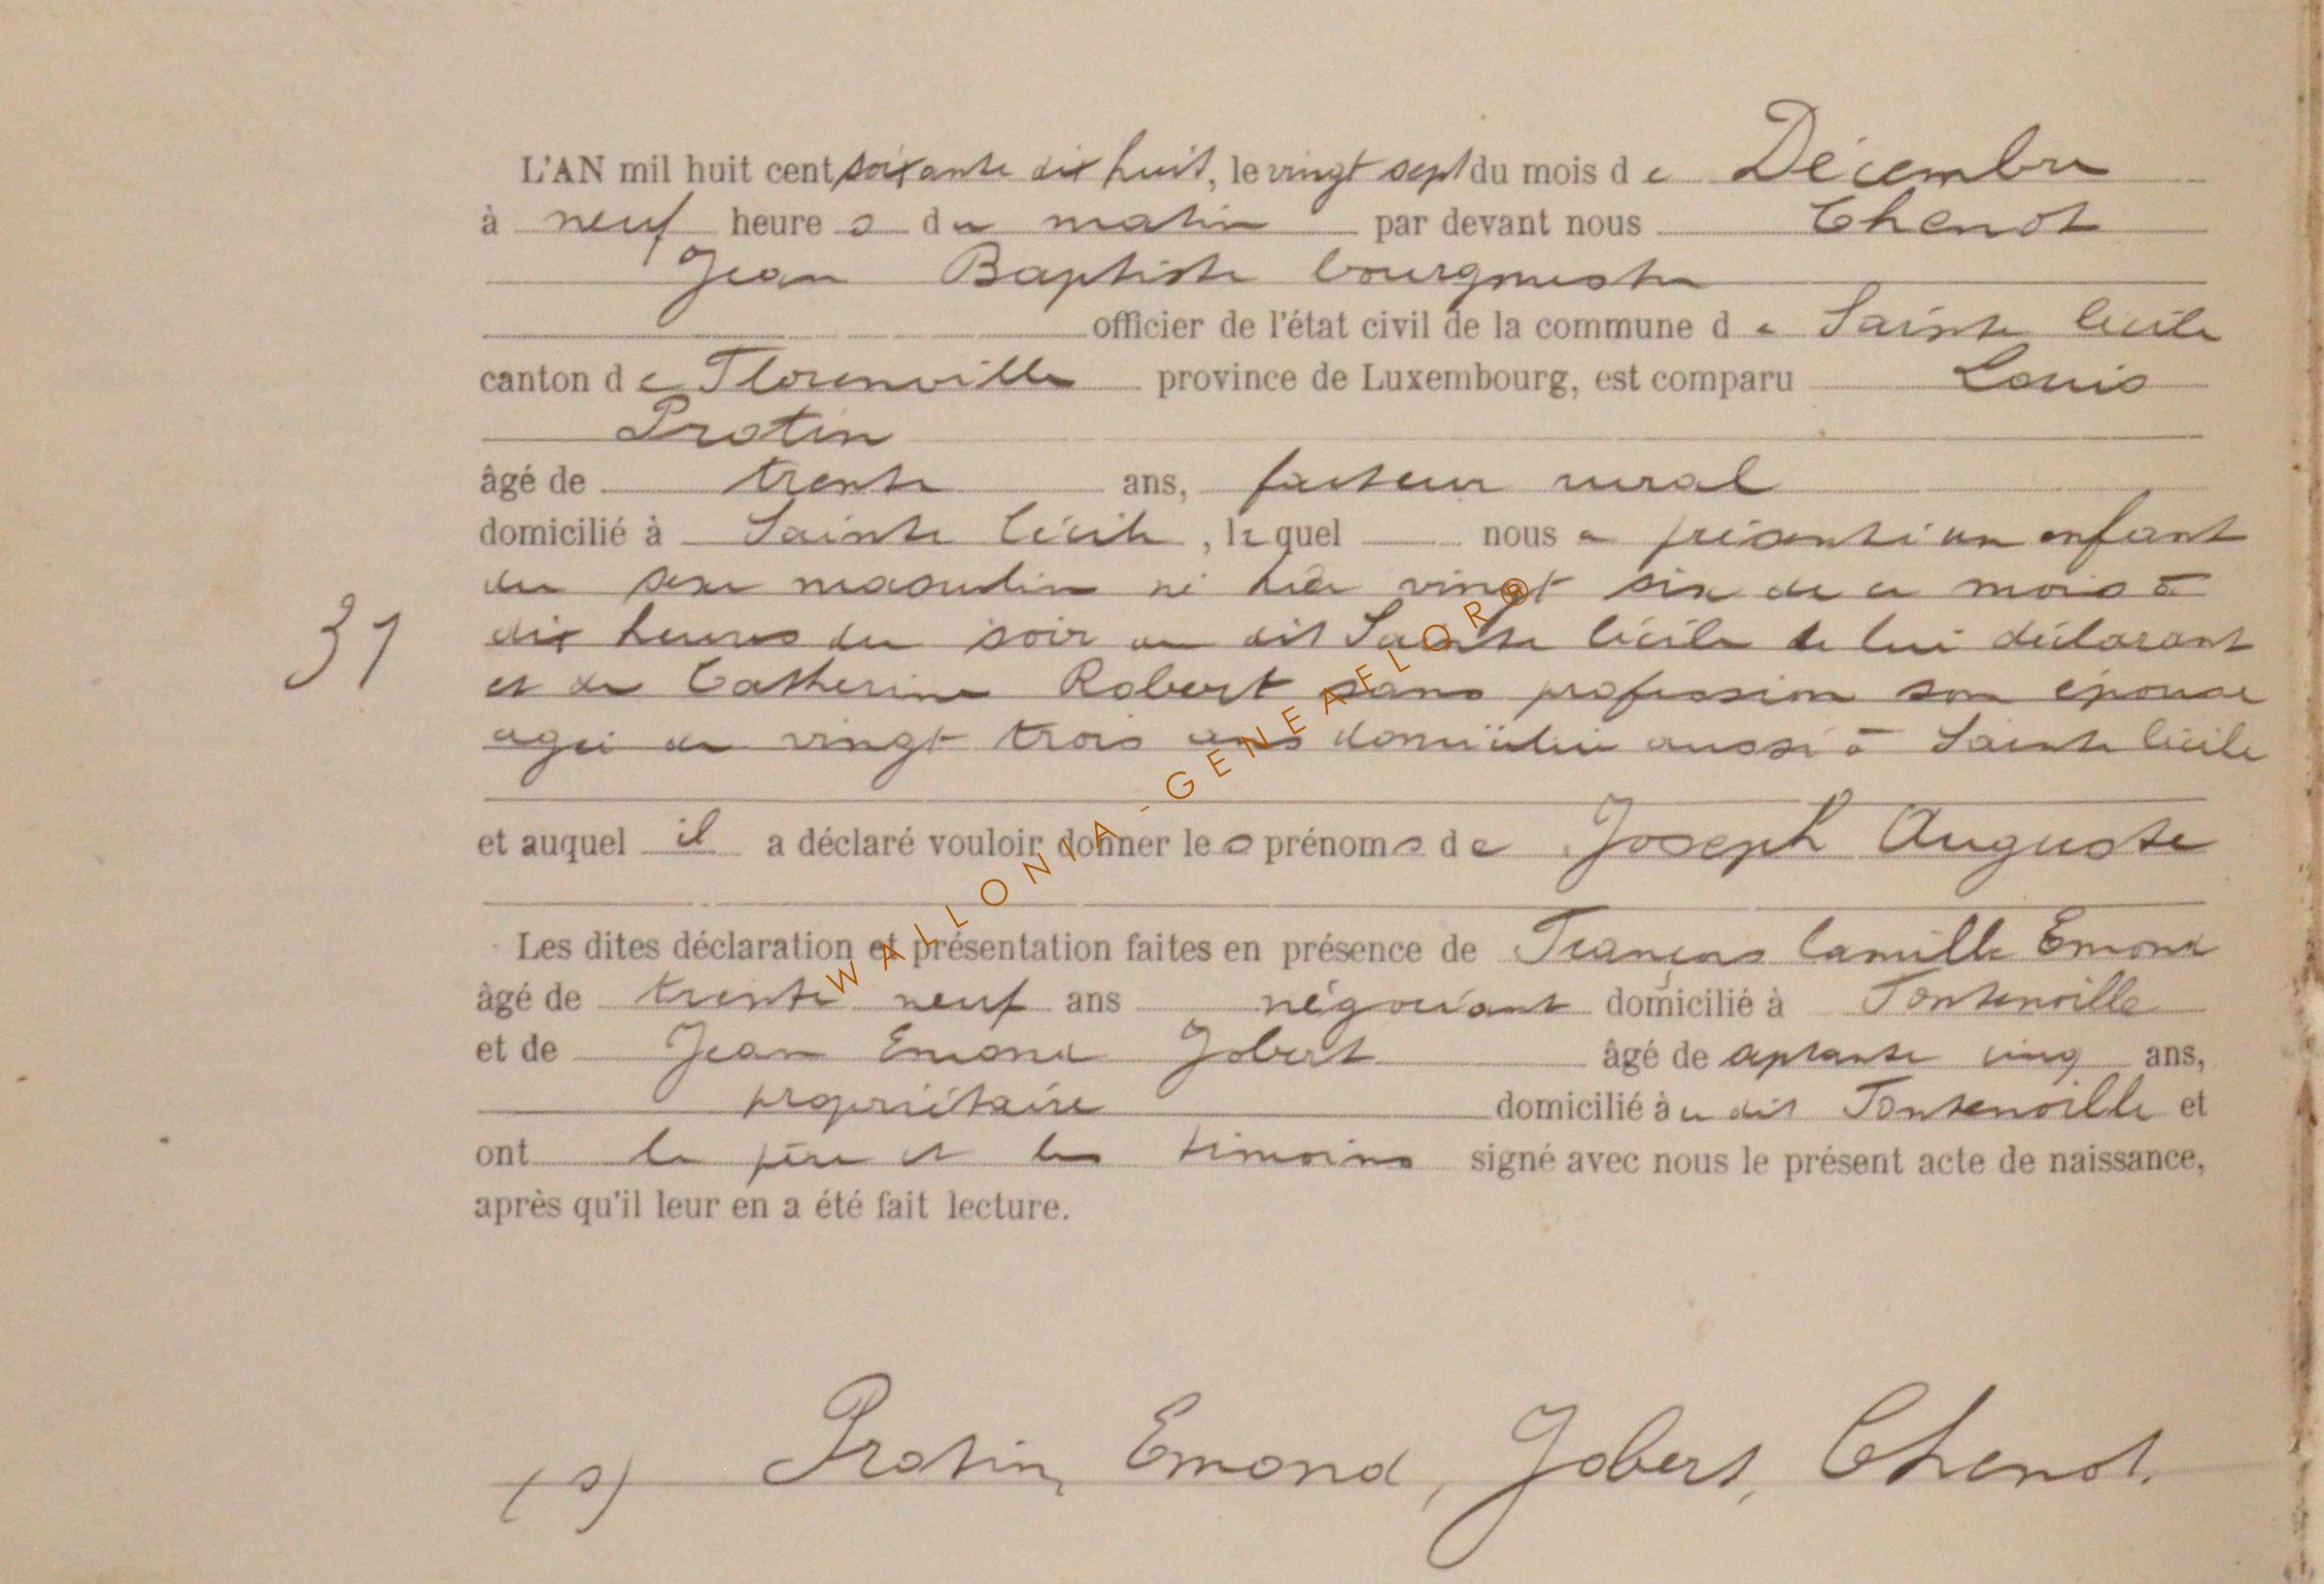 L'AN mil huit cent soixante dix huit, le vingt sept du mois de Décembre
à neuf heures du matin par devant nous Chenot
Jean Baptiste bourgmestre
officier de l'état civil de la commune de Sainte Cécile
canton de Florenville province de Luxembourg, est comparu Louis
Protin
âgé de trente ans, facteur rural
domicilié à Sainte Cécile, lequel nous a présenté un enfant
du sexe masculin né hier vingt six de ce mois à
31
dix heures du soir au dit Sainte Cécile de lui déclarant
et de Catherine Robert sans profession son épouse
agée de vingt trois ans domiciliée aussi à Sainte Cécile
et auquel il a déclaré vouloir donner les prénoms de Joseph Auguste
Les dites déclaration et présentation faites en présence de François Camille Emond
âgé de trente neuf ans négociant domicilié à Fontenoille
et de Jean Emond Jobert âgé de septante cinq ans,
propriétaire domicilié à u dit Fontenoille et
ont le père et les témoins signé avec nous le présent acte de naissance,
après qu'il leur en a été fait lecture.
(s) Protin, Emond, Jobert, Chenot.
WALLONIA - GENEAFLOR®